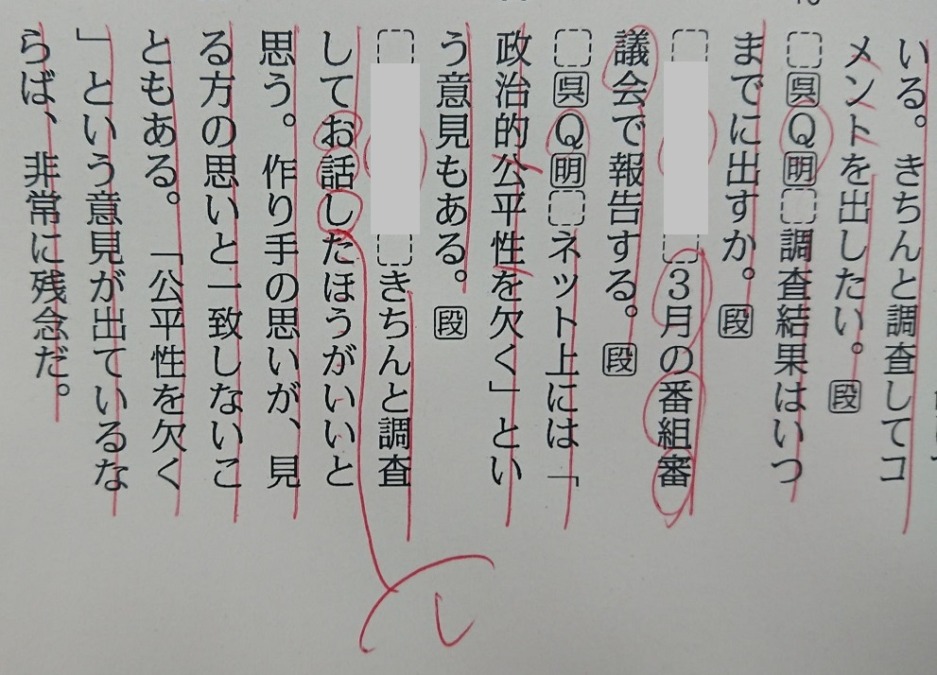 いる。きちんと調査してコ
メントを出したい。段
呉Q明 調査結果はいつ
までに出すか。段
3月の番組審
議会で報告する。段
呉Q明 ネット上には「
政治的公平性を欠く」とい
う意見もある。段
きちんと調査
してお話したほうがいいと
思う。作り手の思いが、見
る方の思いと一致しないこ
ともある。「公平性を欠く
」という意見が出ているな
らば、非常に残念だ。
し